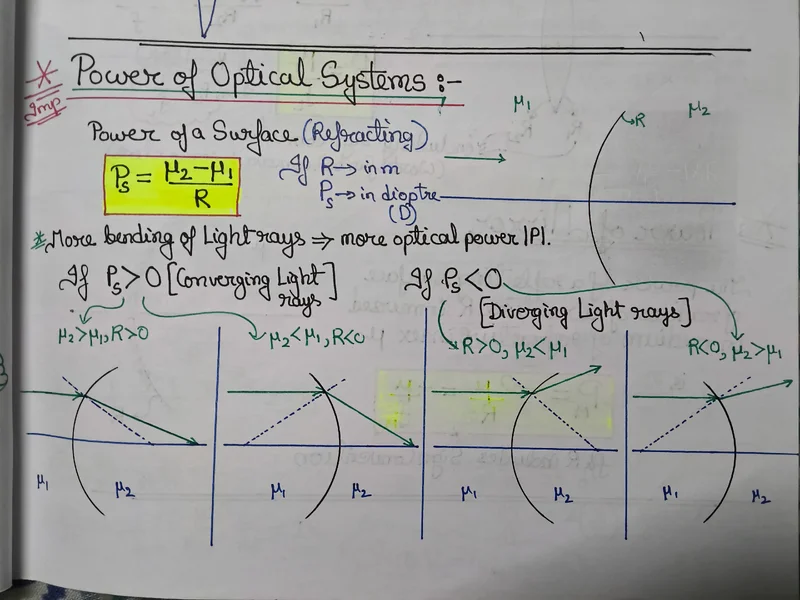 * Power of Optical Systems :-
Imp
μ₁
μ₂
R
Power of a Surface (Refracting)
Pₛ = μ₂-μ₁ / R
If R → in m
Pₛ → in dioptre
(D)
* More bending of Light rays ⇒ more optical power |P|.
If Pₛ > 0 [Converging Light rays]
If Pₛ < 0
[Diverging Light rays]
μ₂>μ₁, R>0
μ₂<μ₁, R<0
R>0, μ₂<μ₁
R<0, μ₂>μ₁
μ₁ μ₂
μ₁ μ₂
μ₁ μ₂
μ₁ μ₂